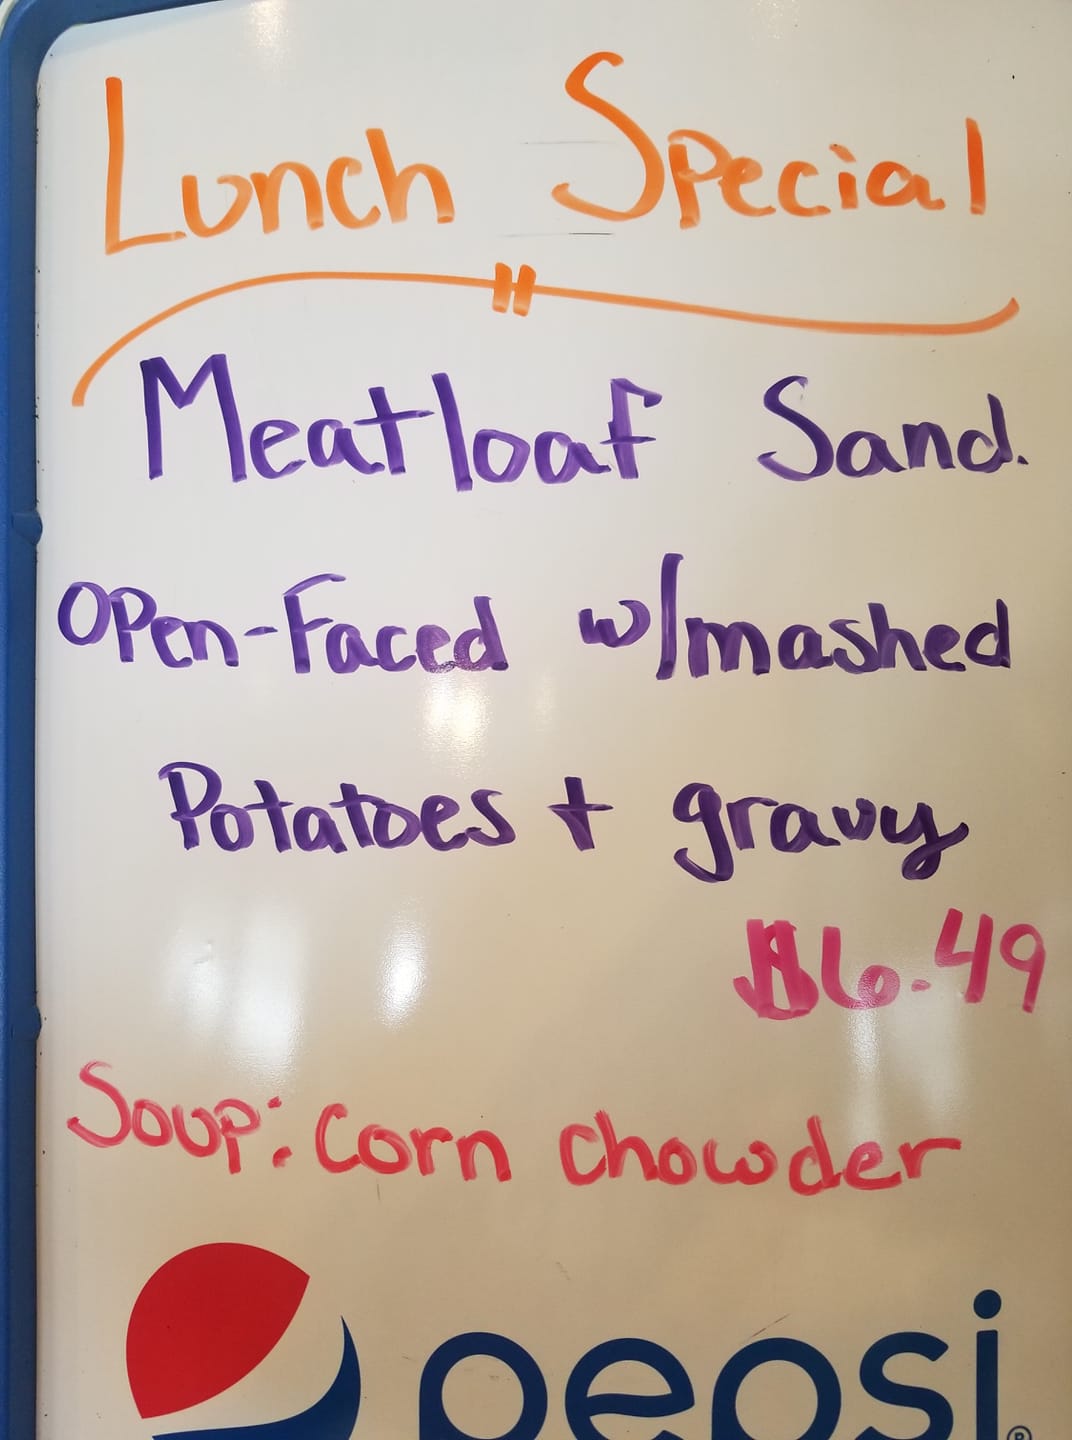 Lunch Special
Meatloaf Sand.
Open-Faced w/mashed
Potatoes + gravy
$6.49
Soup: Corn Chowder
pepsi®